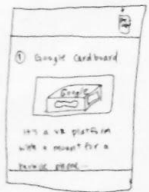 ① Google Cardboard
Google
It's a VR platform
with a mount for a
phone...